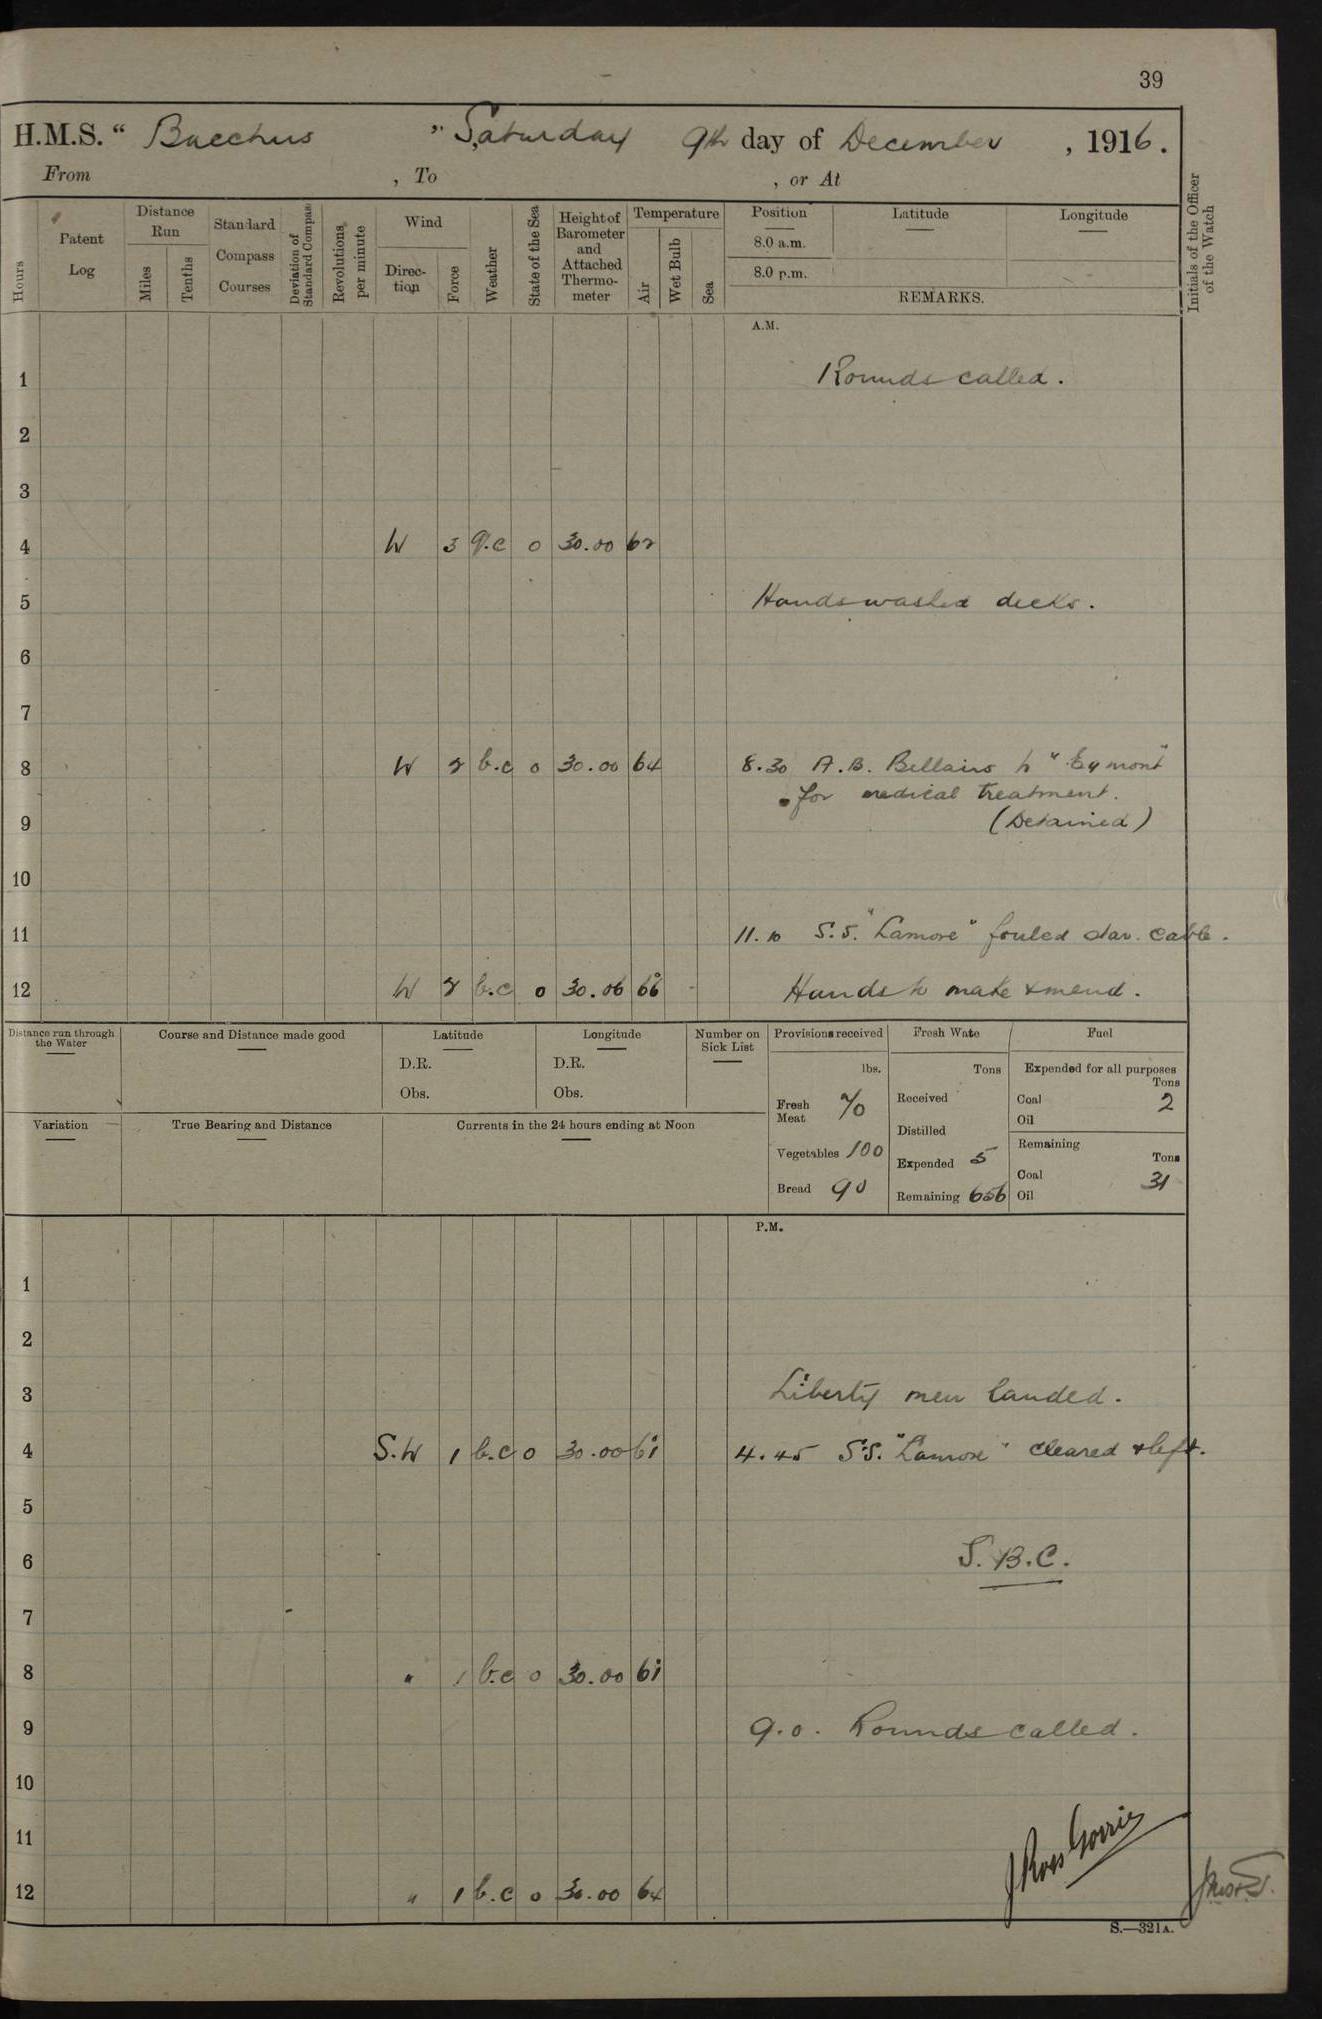 39
H.M.S. “ Bacchus ” Saturday 9th day of December , 1916.
From , To , or At
Hours
Patent Log
Distance Run
Miles
Tenths
Standard Compass Courses
Deviation of Standard Compass
Revolutions per minute
Wind
Direction
Force
Weather
State of the Sea
Height of Barometer and Attached Thermometer
Temperature
Air
Wet Bulb
Sea
Position Latitude Longitude
8.0 a.m.
8.0 p.m.
REMARKS.
Initials of the Officer of the Watch
A.M.
1 Rounds called.
2
3
4 W 3 q.c 0 30.00 62
5 Hands washed decks.
6
7
8 W 2 b.c 0 30.00 64 8.30 A.B. Bellairs to "Egmont"
for medical treatment.
9 (Detained)
10
11 11.10 S.S. "Lamore" fouled star. cable.
12 W 2 b.c 0 30.06 66 Hands to make & mend.
Distance run through the Water
Course and Distance made good
Latitude
D.R.
Obs.
Longitude
D.R.
Obs.
Number on Sick List
Provisions received
lbs.
Fresh Meat 70
Vegetables 100
Bread 90
Fresh Wate
Tons
Received
Distilled
Expended 5
Remaining 656
Fuel
Expended for all purposes
Tons
Coal 2
Oil
Remaining
Tons
Coal 31
Oil
Variation
True Bearing and Distance
Currents in the 24 hours ending at Noon
P.M.
1
2
3 Liberty men landed.
4 S.W 1 b.c 0 30.00 61 4.45 S.S. "Lamore" cleared & left.
5
6 S.B.C.
7
8 " 1 b.c 0 30.00 61
9 9.0. Rounds called.
10
11 J Ross Gorrie
12 " 1 b.c 0 30.00 64
S.—321A.